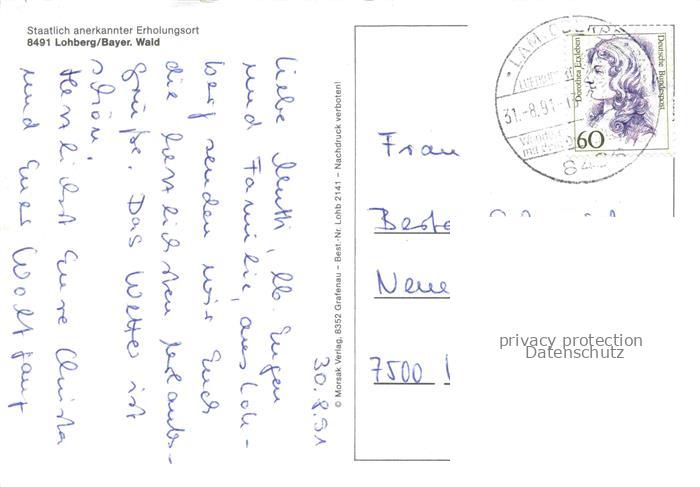 Staatlich anerkannter Erholungsort
8491 Lohberg/Bayer. Wald
30.8.91
Liebe Mutti, lb. Eugen
und Familie, aus Loh-
berg senden wir Euch
die herzlichsten Urlaubs-
grüße. Das Wetter ist
schön.
Herzlichst Eure Christa
und Euer Wolfgang
© Morsak Verlag, 8352 Grafenau – Best.-Nr. Lohb 2141 – Nachdruck verboten!
31.-8.91
Deutsche Bundespost
Dorothea Erxleben
60
Frau
Neue
7500
privacy protection
Datenschutz